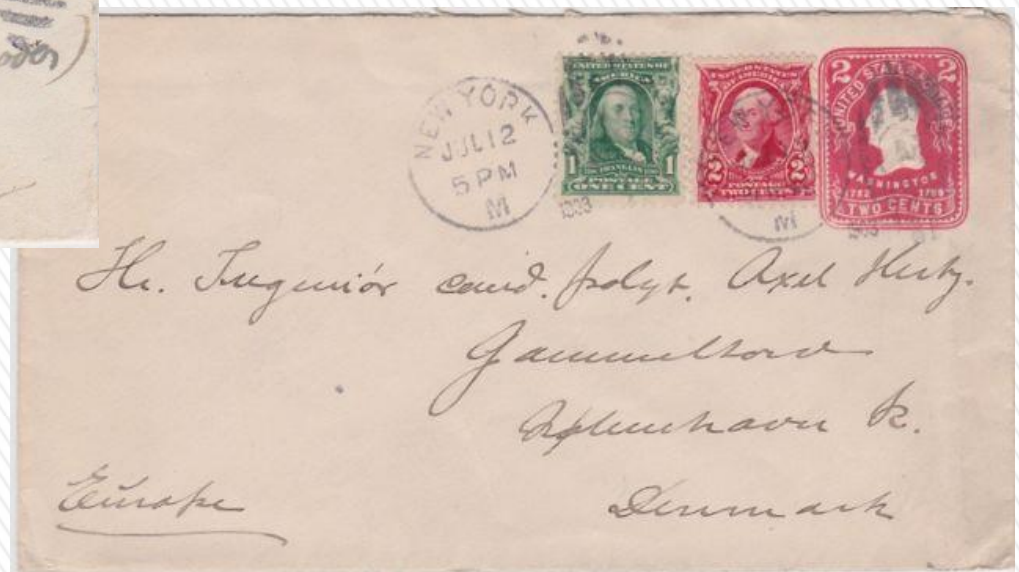 NEW YORK
JUL 12
5 PM
M
1903
UNITED STATES OF
AMERICA
1 FRANKLIN 1
POSTAGE
ONE CENT
UNITED STATES
OF AMERICA
2 2
POSTAGE
TWO CENTS
M
2 2
UNITED STATES
WASHINGTON
1732 1799
TWO CENTS
Hr. Ingeniör cand. polyt. Axel Hertz.
Gammeltorv
København K.
Europe
Denmark